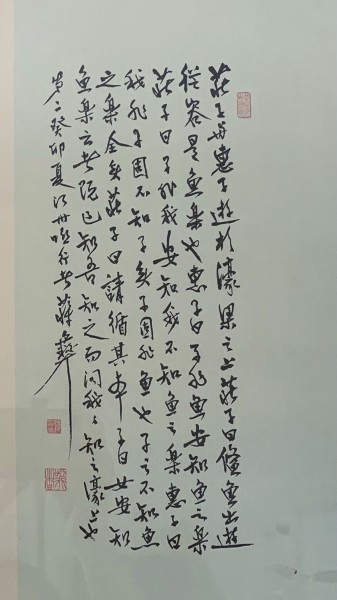 莊子與惠子遊於濠梁之上莊子曰儵魚出遊
從容是魚樂也惠子曰子非魚安知魚之樂
莊子曰子非我安知我不知魚之樂惠子曰
我非子固不知子矣子固非魚也子之不知魚
之樂全矣莊子曰請循其本子曰女安知
魚樂云者既已知吾知之而問我我知之濠上也
歲二癸卯夏江州